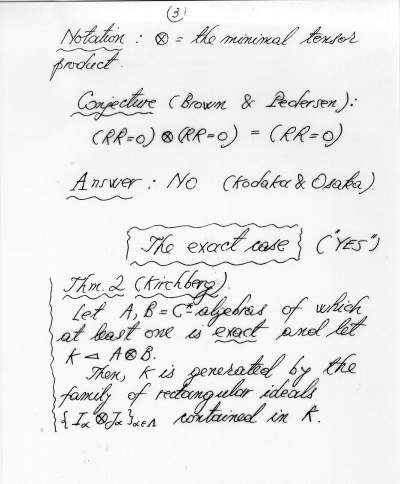 (3)
Notation : ⊗ = the minimal tensor
product.
Conjecture (Brown & Pedersen):
(RR=0) ⊗ (RR=0) = (RR=0)
Answer : NO (Kodaka & Osaka)
{The exact case} ("YES")
Thm. 2 (Kirchberg).
Let A, B = C*-algebras of which
at least one is exact and let
K ◁ A⊗B.
Then, K is generated by the
family of rectangular ideals
{Iα ⊗ Jα}α∈Λ contained in K.